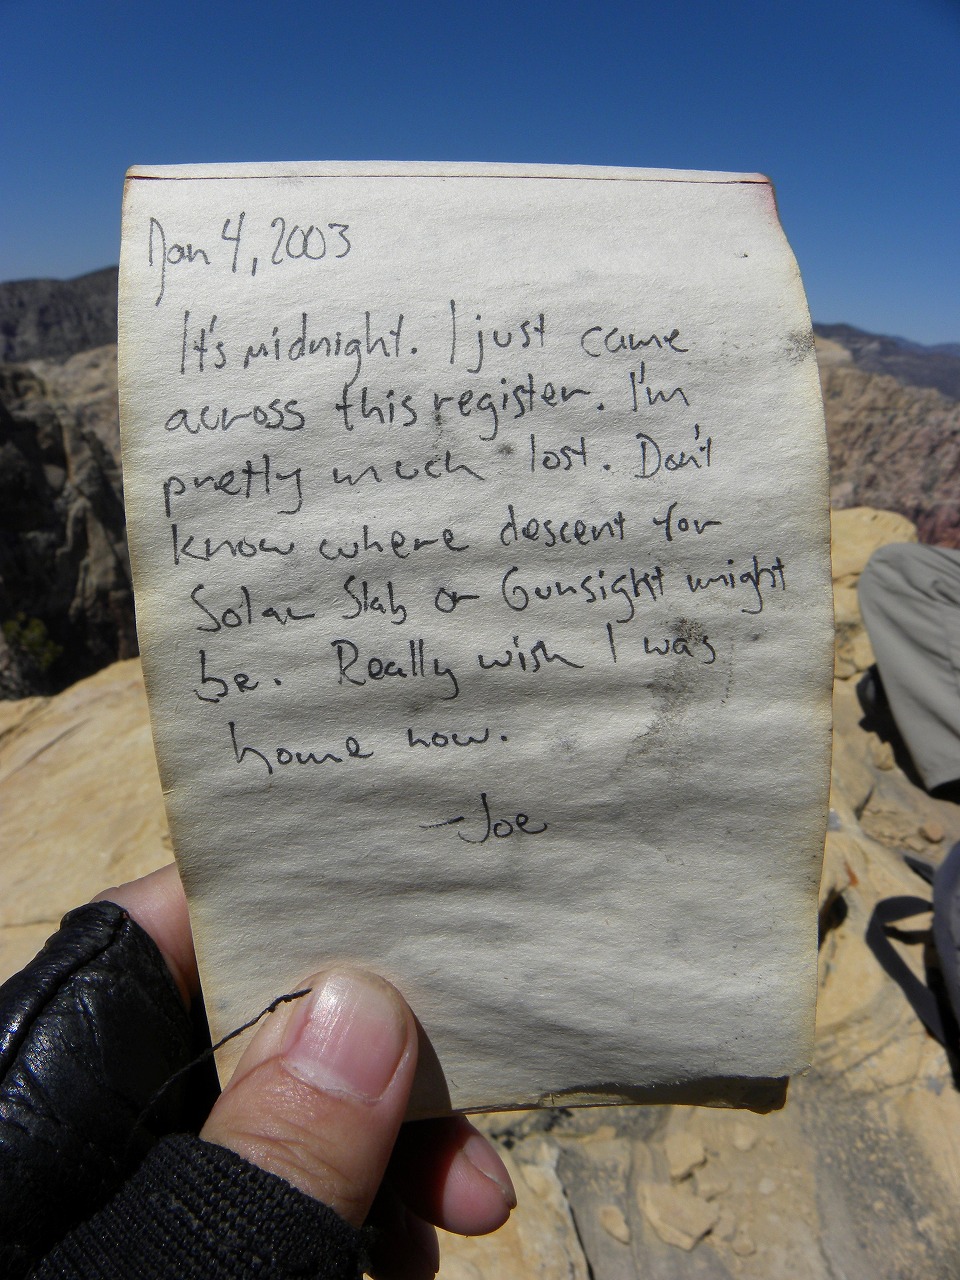 Jan 4, 2003
It's midnight. I just came
across this register. I'm
pretty much lost. Don't
know where descent for
Solar Slab or Gunsight might
be. Really wish I was
home now.
-Joe